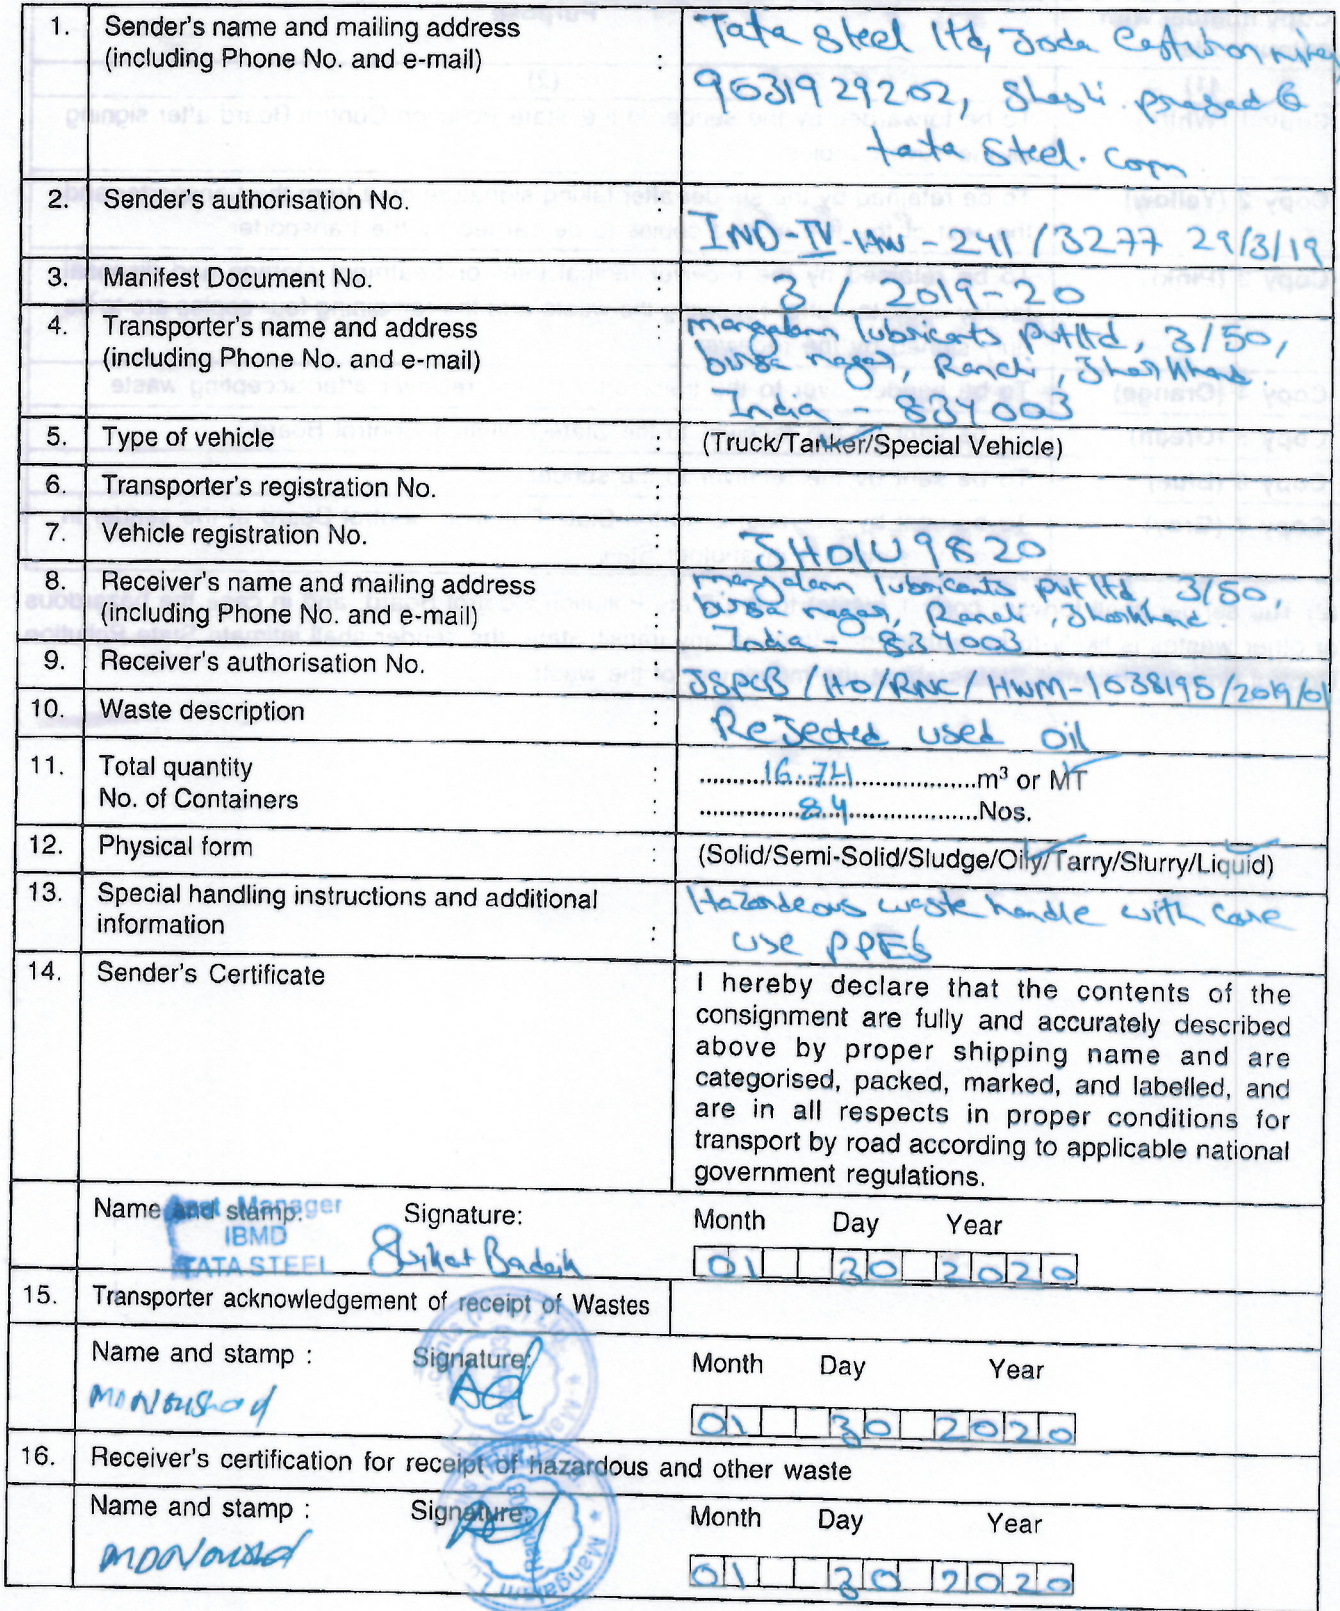 1. Sender's name and mailing address
(including Phone No. and e-mail) :
Tata Steel ltd, Joda East Iron
9031929202, Shashi.prasad@
tata steel.com
2. Sender's authorisation No. :
IND-IV-HW-241/3277 29/3/19
3. Manifest Document No. :
3 / 2019-20
4. Transporter's name and address :
(including Phone No. and e-mail)
mangalam lubricants pvt ltd, 3/50,
birsa nagar, Ranchi, Jharkhand.
India - 834003
5. Type of vehicle : (Truck/Tanker/Special Vehicle)
6. Transporter's registration No. :
7. Vehicle registration No. : JH01U9820
8. Receiver's name and mailing address :
(including Phone No. and e-mail) :
mangalam lubricants pvt ltd 3/50,
birsa nagar, Ranchi, Jharkhand
India 834003
9. Receiver's authorisation No. :
JSPCB/HO/RNC/HWM-1038195/2019/01
10. Waste description : Rejected used oil
11. Total quantity : ..........16.74..................m³ or MT
No. of Containers : ..............84......................Nos.
12. Physical form : (Solid/Semi-Solid/Sludge/Oily/Tarry/Slurry/Liquid)
13. Special handling instructions and additional
information :
Hazardeous waste handle with care
use PPES
14. Sender's Certificate
I hereby declare that the contents of the
consignment are fully and accurately described
above by proper shipping name and are
categorised, packed, marked, and labelled, and
are in all respects in proper conditions for
transport by road according to applicable national
government regulations.
Name and stamp: Signature: Month Day Year
Manager
IBMD
TATA STEEL
Badaik
01 30 2020
15. Transporter acknowledgement of receipt of Wastes
Name and stamp : Signature: Month Day Year
MD Noushad
01 30 2020
16. Receiver's certification for receipt of hazardous and other waste
Name and stamp : Signature: Month Day Year
MD Noushad
01 30 2020